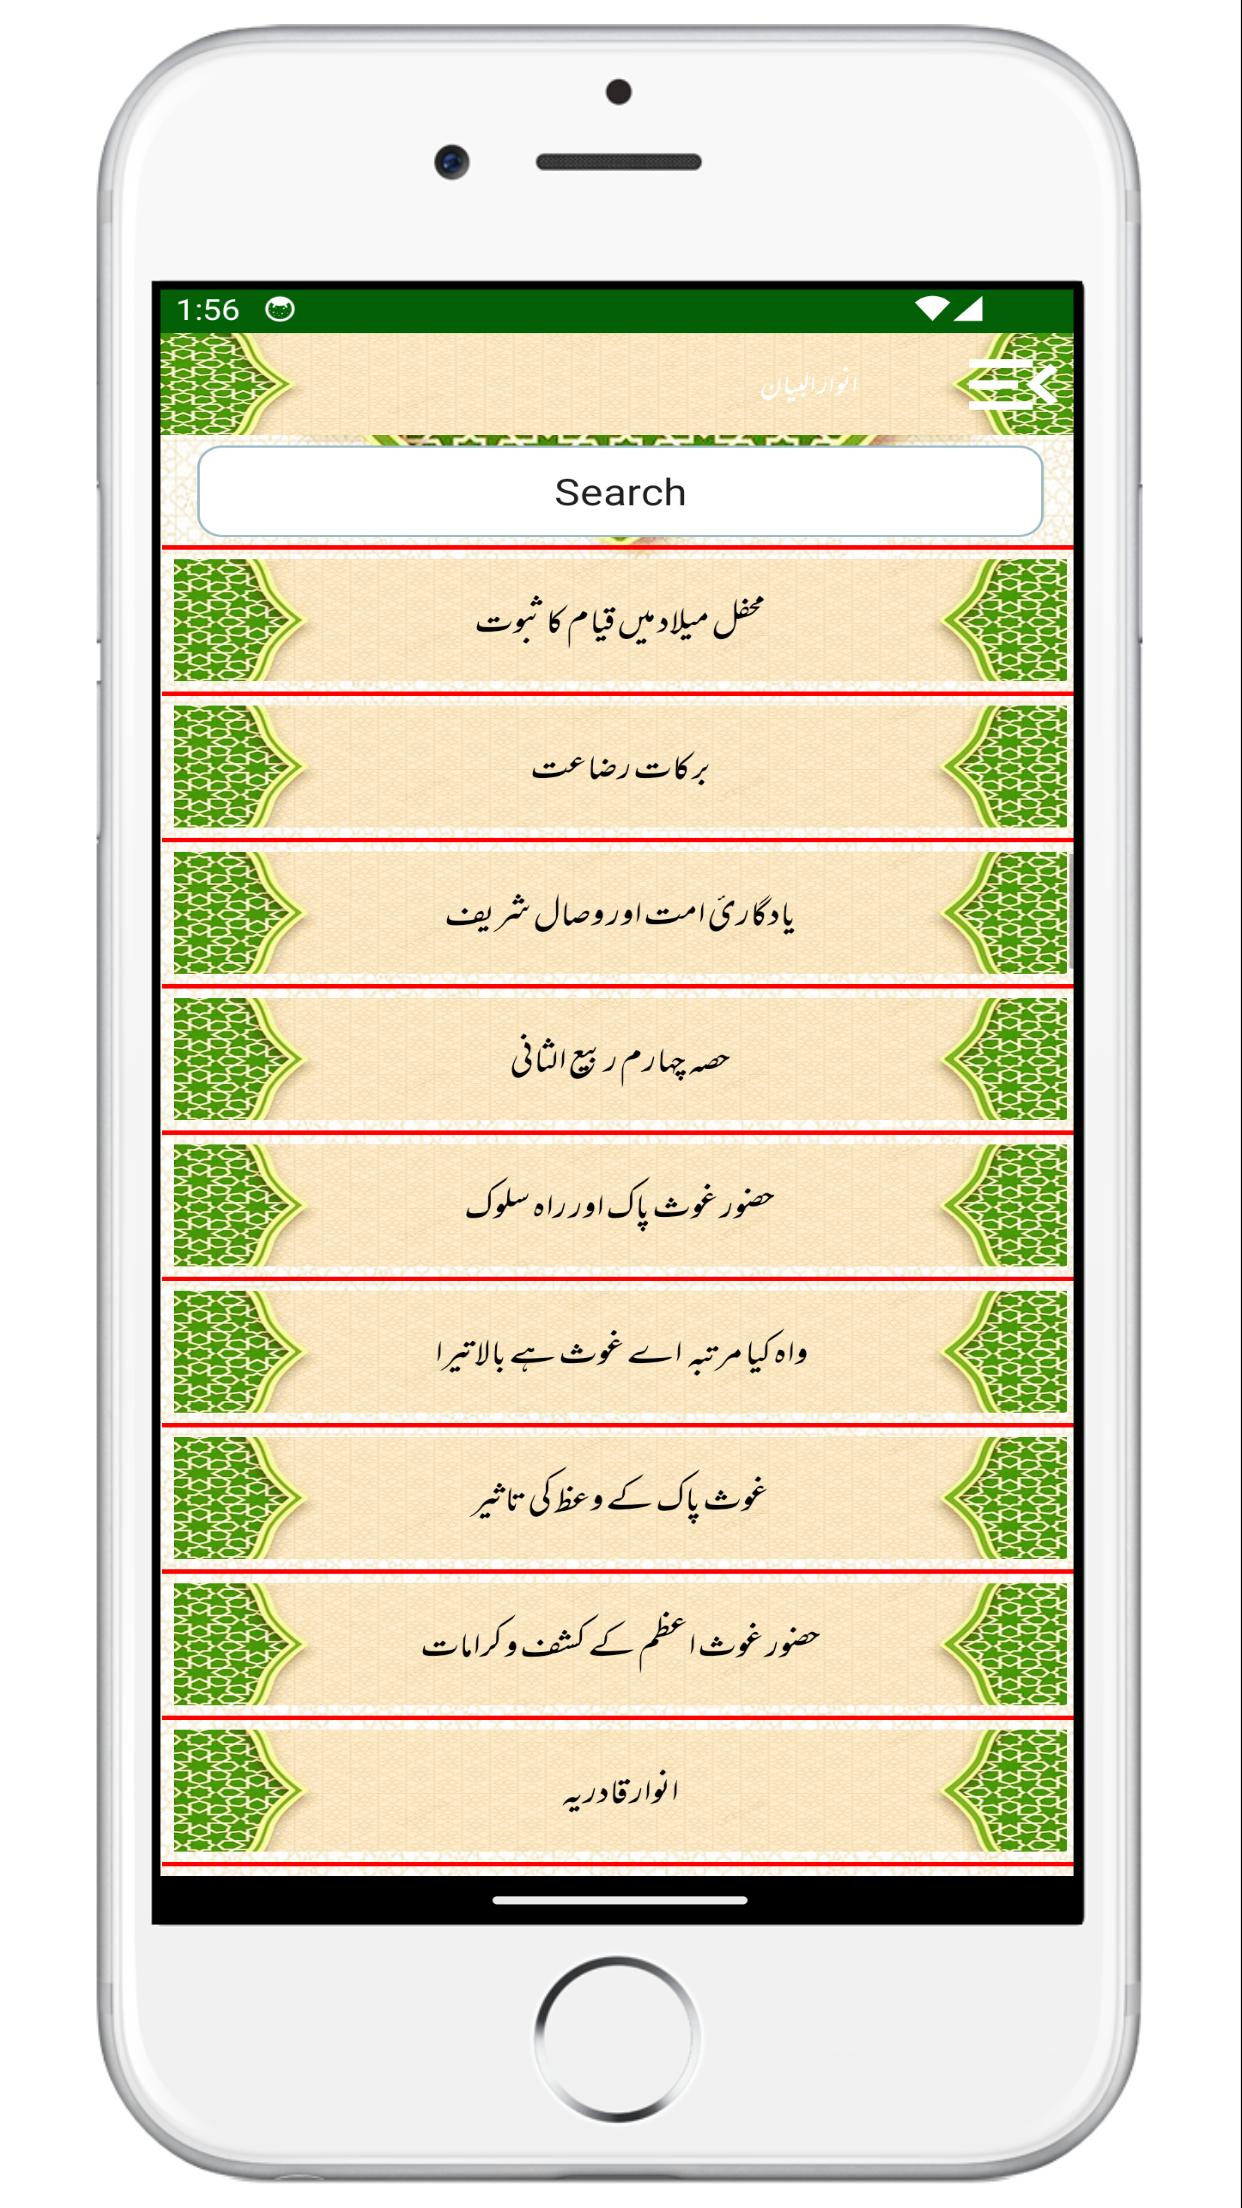 1:56
انوار البیان
Search
محفل میلاد میں قیام کا ثبوت
برکات رضاعت
یادگاریٔ امت اور وصال شریف
حصہ چہارم ربیع الثانی
حضور غوث پاک اور راہ سلوک
واہ کیا مرتبہ اے غوث ہے بالا تیرا
غوث پاک کے وعظ کی تاثیر
حضور غوث اعظم کے کشف و کرامات
انوار قادریہ